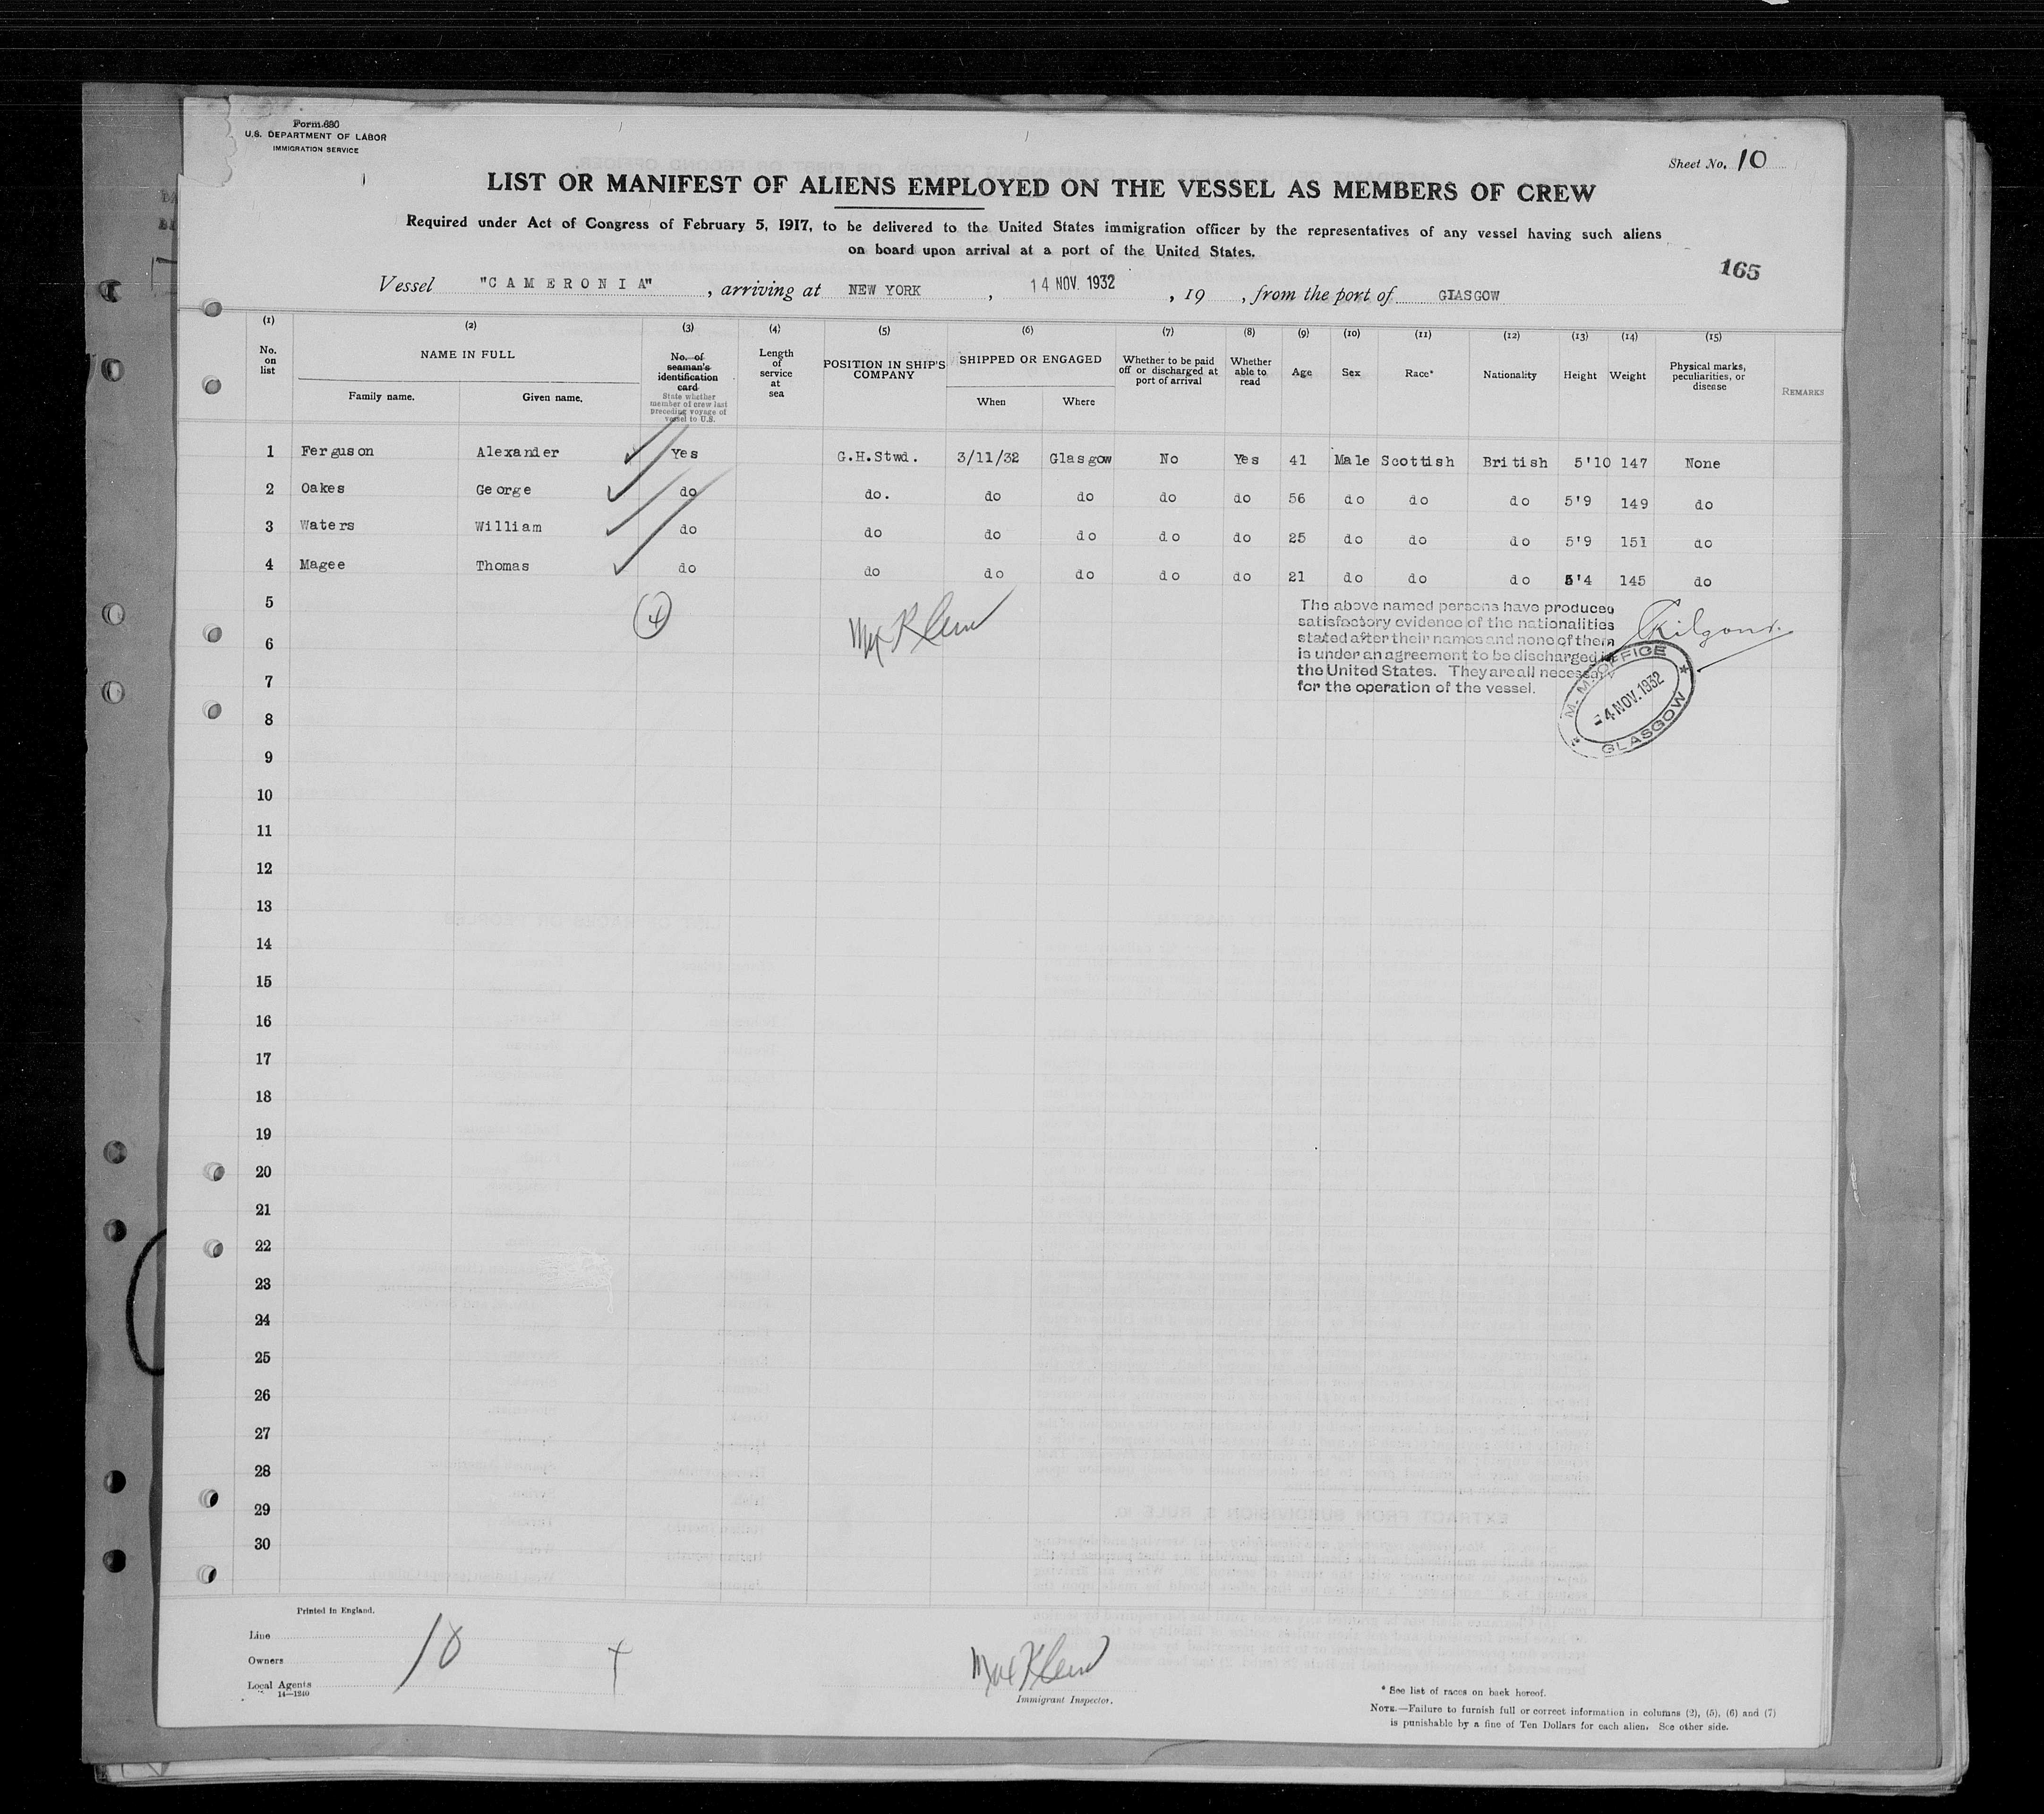 Form 680
U.S. DEPARTMENT OF LABOR
IMMIGRATION SERVICE
Sheet No. 10
LIST OR MANIFEST OF ALIENS EMPLOYED ON THE VESSEL AS MEMBERS OF CREW
Required under Act of Congress of February 5, 1917, to be delivered to the United States immigration officer by the representatives of any vessel having such aliens
on board upon arrival at a port of the United States.
165
Vessel "CAMERONIA", arriving at NEW YORK, 14 NOV. 1932, 19 , from the port of GLASGOW
(1) (2) (3) (4) (5) (6) (7) (8) (9) (10) (11) (12) (13) (14) (15)
No. on list NAME IN FULL Family name. Given name. No. of seaman's identification card State whether member of crew last preceding voyage of vessel to U.S. Length of service at sea POSITION IN SHIP'S COMPANY SHIPPED OR ENGAGED When Where Whether to be paid off or discharged at port of arrival Whether able to read Age Sex Race* Nationality Height Weight Physical marks, peculiarities, or disease REMARKS
1 Ferguson Alexander Yes G.H.Stwd. 3/11/32 Glasgow No Yes 41 Male Scottish British 5'10 147 None
2 Oakes George do do. do do do do 56 do do do 5'9 149 do
3 Waters William do do do do do do 25 do do do 5'9 151 do
4 Magee Thomas do do do do do do 21 do do do 5'4 145 do
5
4
Max Klein
The above named persons have produced
satisfactory evidence of the nationalities
stated after their names and none of them
is under an agreement to be discharged in
the United States. They are all necessary
for the operation of the vessel.
Kilgour
M. M. OFFICE
4 NOV. 1932
GLASGOW
6
7
8
9
10
11
12
13
14
15
16
17
18
19
20
21
22
23
24
25
26
27
28
29
30
Printed in England.
Line
Owners
Local Agents
14—1240
10
Max Klein
Immigrant Inspector.
* See list of races on back hereof.
NOTE.—Failure to furnish full or correct information in columns (2), (5), (6) and (7)
is punishable by a fine of Ten Dollars for each alien. See other side.